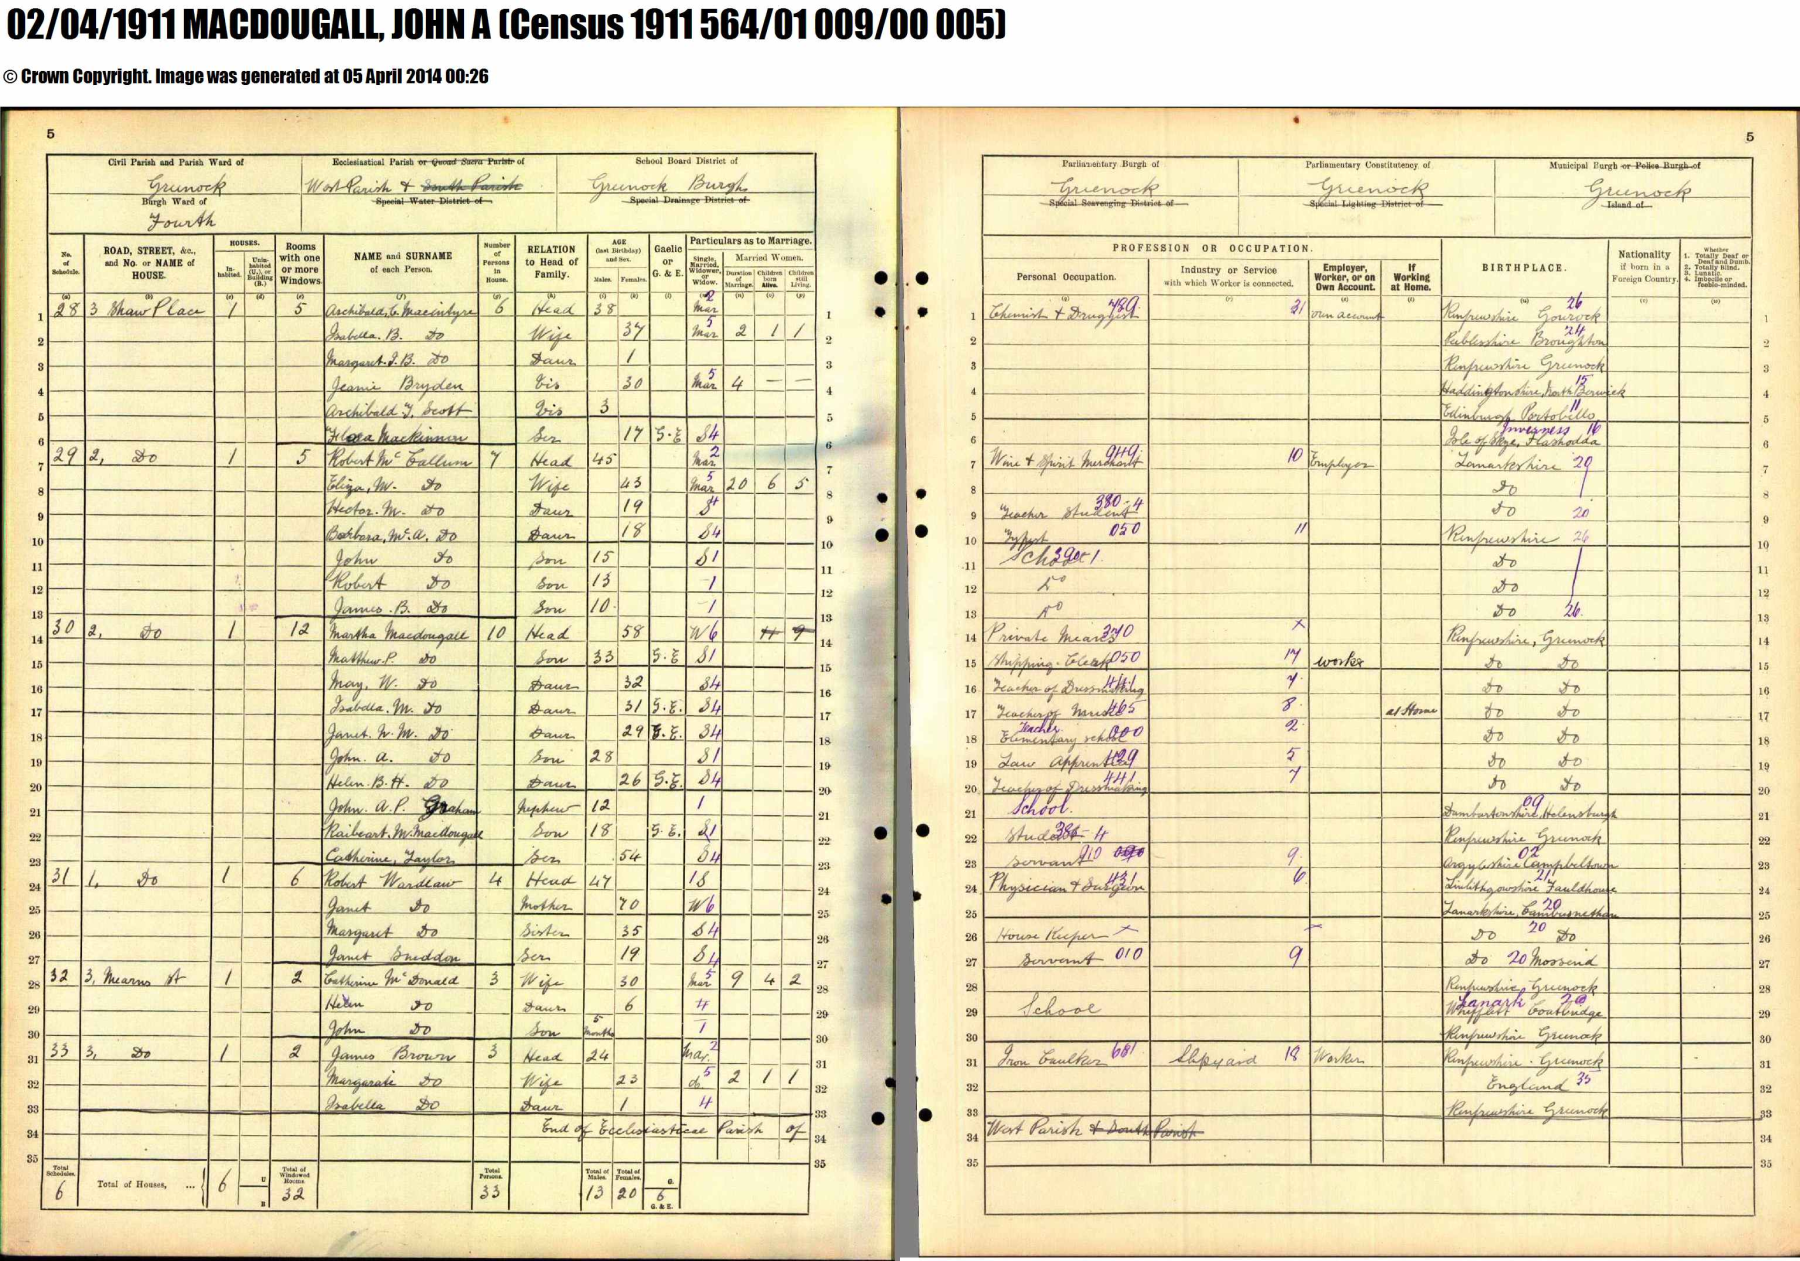 02/04/1911 MACDOUGALL, JOHN A (Census 1911 564/01 009/00 005)
© Crown Copyright. Image was generated at 05 April 2014 00:26
5
Civil Parish and Parish Ward of
Greenock
Burgh Ward of
Fourth
Ecclesiastical Parish or Quoad Sacra Parish of
West Parish & South Parish
Special Water District of
School Board District of
Greenock Burgh
Special Drainage District of
No. of Schedule.
ROAD, STREET, &c., and No. or NAME of HOUSE.
HOUSES.
In-habited.
Unin-habited (U.), or Building (B.)
Rooms with one or more Windows.
NAME and SURNAME of each Person.
Number of Persons in House.
RELATION to Head of Family.
AGE (last Birthday) and Sex.
Males.
Females.
Gaelic or G. & E.
Particulars as to Marriage.
Single, Married, Widower, or Widow.
Married Women.
Duration of Marriage.
Children born Alive.
Children still Living.
1 28 3 Shaw Place 1 5 Archibald, C. Macintyre 6 Head 38 Mar 2
2 Isabella. B. Do Wife 37 Mar 5 2 1 1
3 Margaret. J. B. Do Daur 1
4 Jeanie Bryden Vis 30 Mar 5 4 — —
5 Archibald Y. Scott Vis 3
6 Flora Mackinnon Ser 17 G.E S4
7 29 2, Do 1 5 Robert McCallum 7 Head 45 Mar 2
8 Eliza, M. Do Wife 43 Mar 5 20 6 5
9 Hector. M. Do Daur 19 S4
10 Barbara, McA. Do Daur 18 S4
11 John Do Son 15 S1
12 Robert Do Son 13 1
13 James. B. Do Son 10 1
14 30 2, Do 1 12 Martha Macdougall 10 Head 58 W6 11 9
15 Matthew. P. Do Son 33 G.E S1
16 May, W. Do Daur 32 S4
17 Isabella. M. Do Daur 31 G.E. S4
18 Janet. N. M. Do Daur 29 G.E. S4
19 John. A. Do Son 28 S1
20 Helen. B. H. Do Daur 26 G.E S4
21 John. A. P. Graham Nephew 12 1
22 Raibeart. M. MacDougall Son 18 G.E. S1
23 Catherine, Taylor Ser 54 S4
24 31 1, Do 1 6 Robert Wardlaw 4 Head 47 1S
25 Janet Do Mother 70 W6
26 Margaret Do Sister 35 S4
27 Janet Sneddon Ser 19 S4
28 32 3, Mearns St 1 2 Catherine McDonald 3 Wife 30 Mar 5 9 4 2
29 Helen Do Daur 6 4
30 John Do Son 5 months 1
31 33 3, Do 1 2 James Brown 3 Head 24 Mar. 2
32 Margaret Do Wife 23 do 5 2 1 1
33 Isabella Do Daur 1 4
34 End of Ecclesiastical Parish of
35
Total Schedules. 6
Total of Houses, ... 6 U B
Total of Windowed Rooms. 32
Total Persons. 33
Total of Males. 13
Total of Females. 20
G. 6 G. & E.
5
Parliamentary Burgh of
Greenock
Special Scavenging District of
Parliamentary Constituency of
Greenock
Special Lighting District of
Municipal Burgh or Police Burgh of
Greenock
Island of
PROFESSION OR OCCUPATION.
Personal Occupation.
Industry or Service with which Worker is connected.
Employer, Worker, or on Own Account.
If Working at Home.
BIRTHPLACE.
Nationality if born in a Foreign Country.
Whether
1. Totally Deaf or Deaf and Dumb.
2. Totally Blind.
3. Lunatic.
4. Imbecile or feeble-minded.
1 Chemist & Druggist 489 31 own account Renfrewshire Gourock 26
2 Peeblesshire Broughton 24
3 Renfrewshire Greenock
4 Haddingtonshire, North Berwick 15
5 Edinburgh Portobello 11
6 Isle of Skye, Flashodda Inverness 16
7 Wine & Spirit Merchant 949 10 Employer Lanarkshire 20
8 Do
9 Teacher Student 380-4 Do 20
10 Typist 050 11 Renfrewshire 26
11 School 390-1 Do
12 Do Do
13 Do Do 26
14 Private Means 370 x Renfrewshire, Greenock
15 Shipping Clerk 050 17 worker Do Do
16 Teacher of Dressmaking 441 7 Do Do
17 Teacher of Music 465 8 at Home Do Do
18 Teacher Elementary school 2 Do Do
19 Law Apprentice 429 5 Do Do
20 Teacher of Dressmaking 441 7 Do Do
21 School. Dumbartonshire, Helensburgh 09
22 Student 385-4 Renfrewshire Greenock
23 Servant 910 9 Argyleshire Campbeltown 02
24 Physician & Surgeon 431 6 Linlithgowshire Fauldhouse 21
25 Lanarkshire, Cambusnethan 20
26 House Keeper x Do 20 Do
27 Servant 010 9 Do 20 Mossend
28 Renfrewshire, Greenock
29 School Whifflet Coatbridge Lanark 20
30 Renfrewshire Greenock
31 Iron Caulker 681 Shipyard 18 Worker Renfrewshire. Greenock
32 England 35
33 Renfrewshire Greenock
34 West Parish & South Parish
35